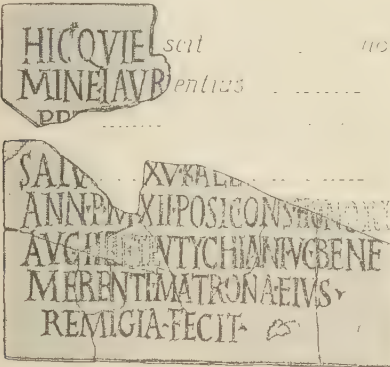 HIC QVIEscit no
MINE LAVRentius
PRE
SALV XV KALE
ANN·P·M·XII·POST CONS HONORI
AVG III ET EVTYCHIANI VC BENE
MERENTI·MATRONA EIVS
REMIGIA·FECIT·